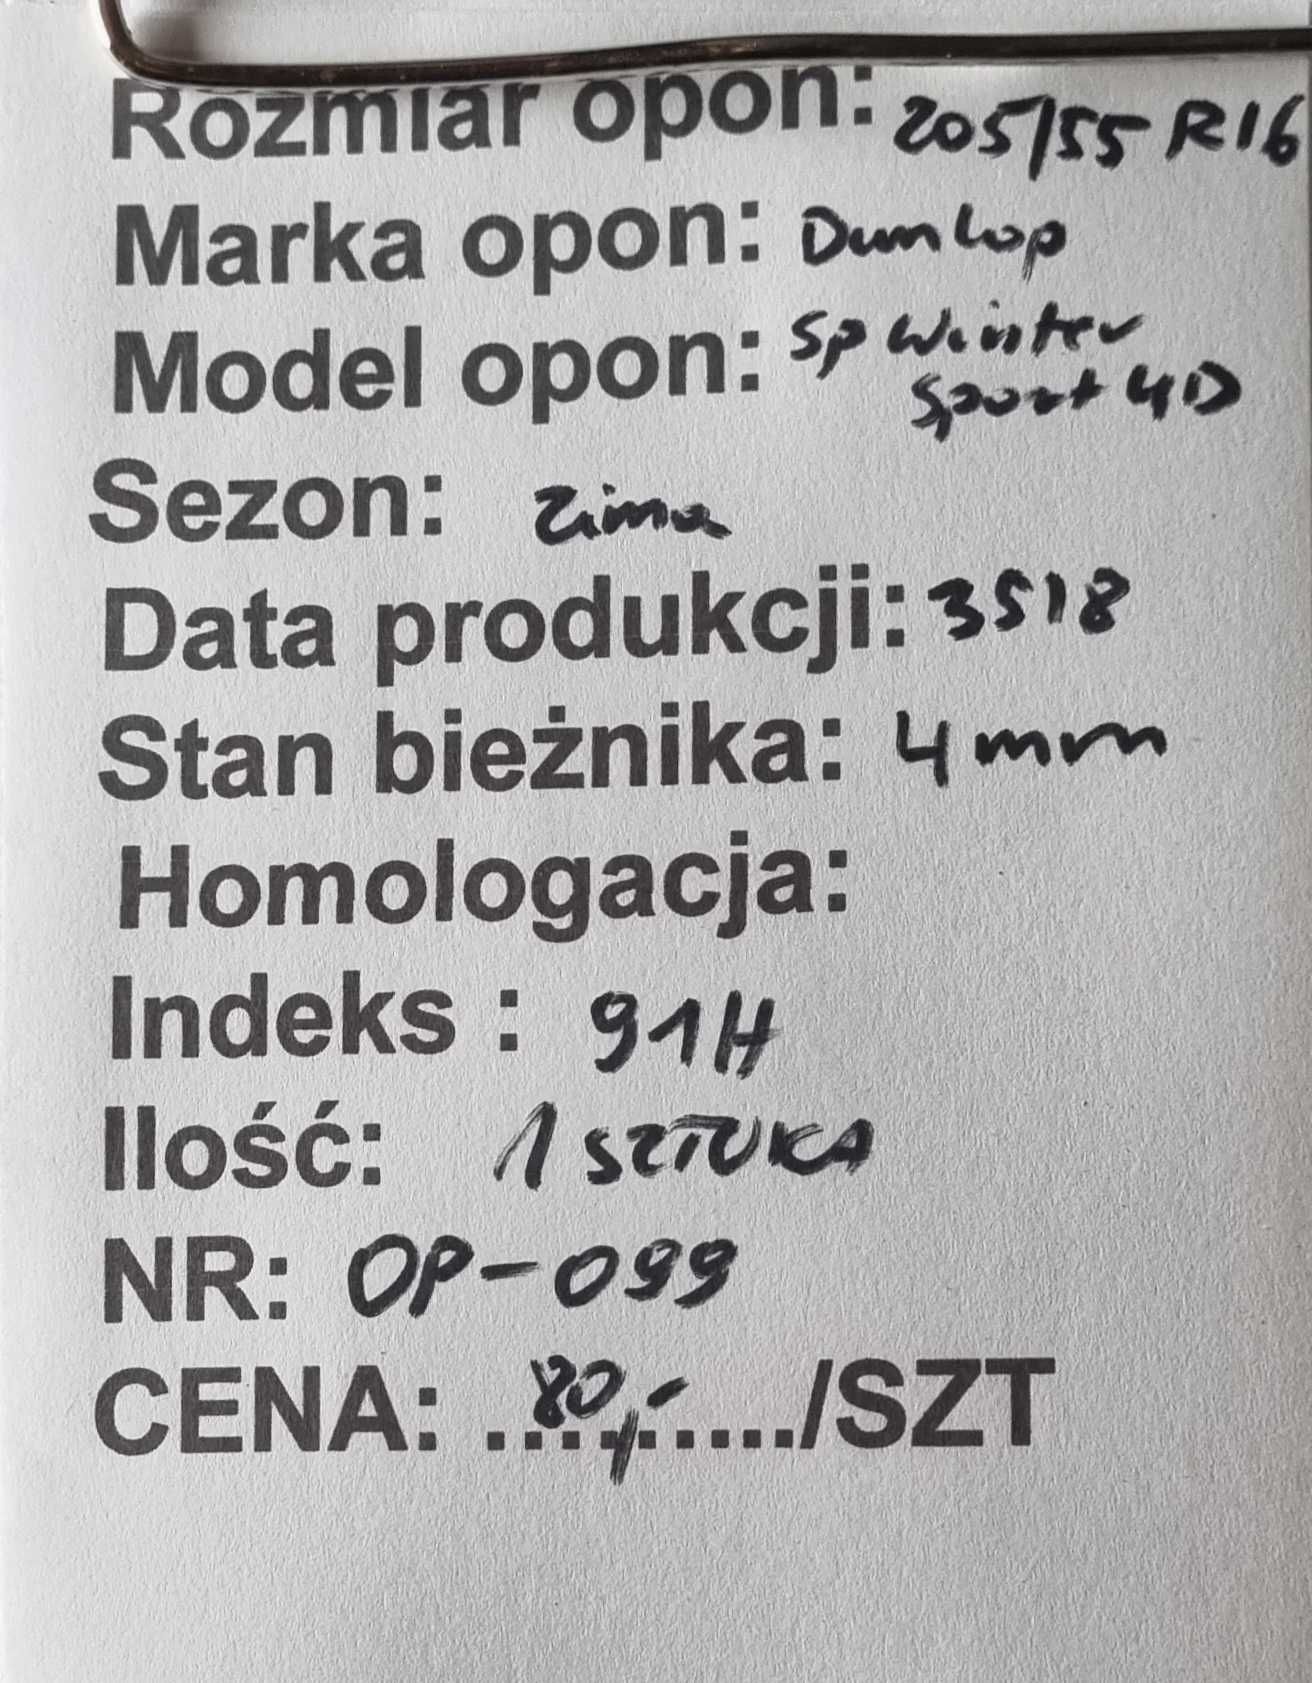 Rozmiar opon: 205/55 R16
Marka opon: Dunlop
Model opon: Sp Winter
Sport 4D
Sezon: Zima
Data produkcji: 3518
Stan bieżnika: 4mm
Homologacja:
Indeks : 91H
Ilość: 1 SZTUKA
NR: OP-099
CENA: ..80,-......./SZT